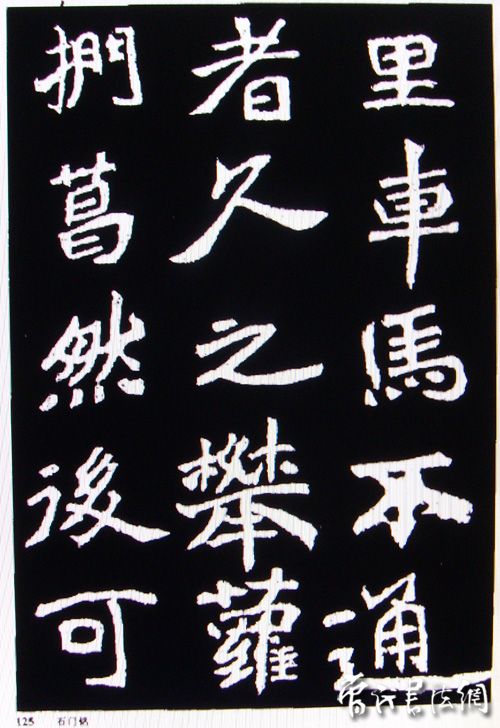 里車馬不通
者久之攀蘿
捫葛然後可
125 石门铭
書法網